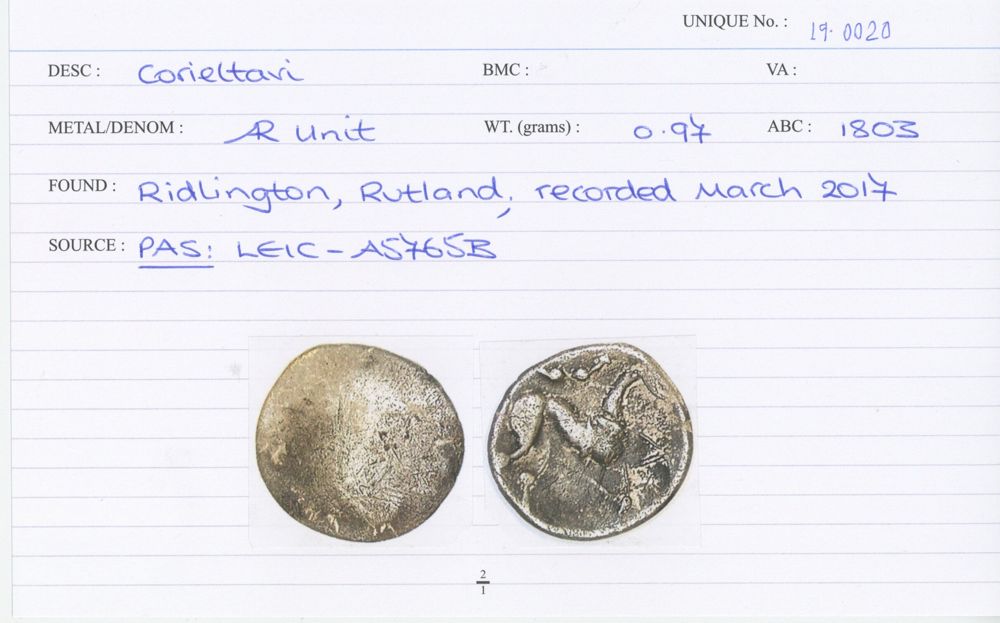 UNIQUE No. : 19.0020
DESC : Corieltavi BMC : VA :
METAL/DENOM : AR Unit WT. (grams) : 0.97 ABC : 1803
FOUND : Ridlington, Rutland; recorded March 2017
SOURCE : PAS: LEIC-A5765B
2
1